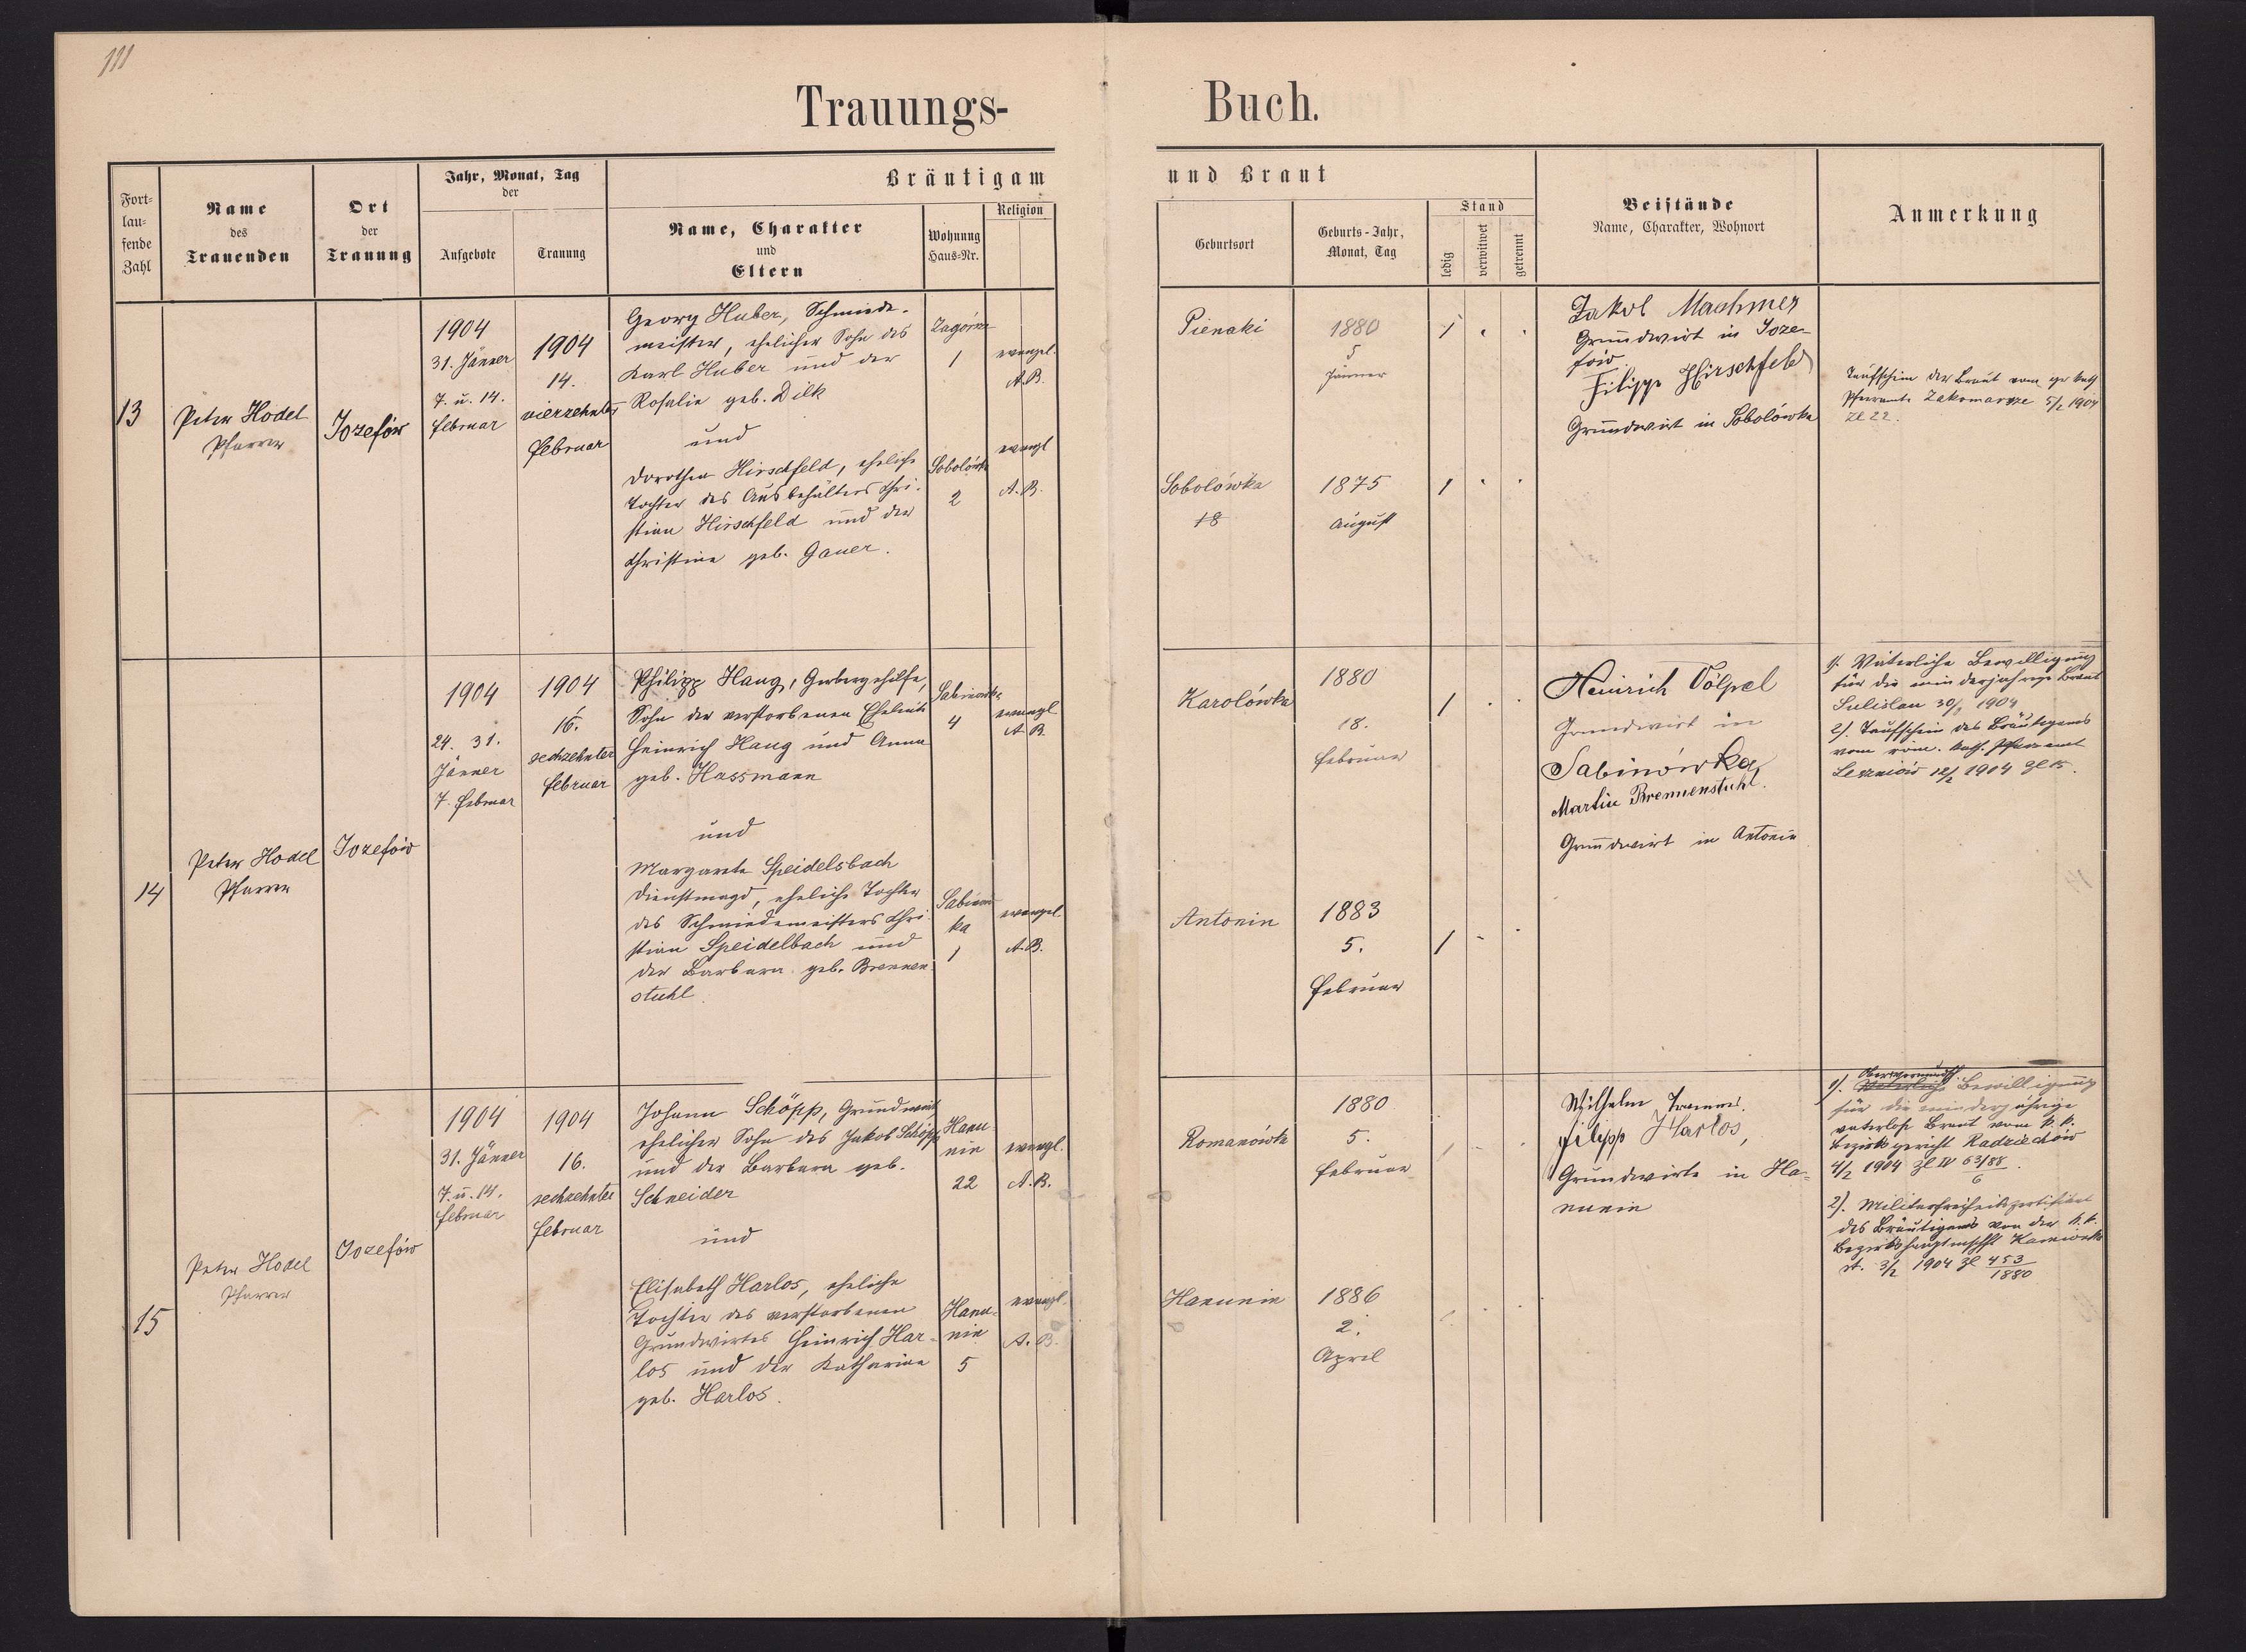 111
Trauungs-
Buch.
Fort-
lau-
fende
Zahl
Name
des
Trauenden
Ort
der
Trauung
Jahr, Monat, Tag
der
Aufgebote
Trauung
Bräutigam
Name, Charakter
und
Eltern
Wohnung
Haus-Nr.
Religion
und Braut
Geburtsort
Geburts-Jahr,
Monat, Tag
Stand
ledig
verwitwet
getrennt
Beistände
Name, Charakter, Wohnort
Anmerkung
13
Peter Hodel
Pfarrer
Jozefów
1904
31. Jänner
7. u. 14.
Februar
1904
14.
vierzehnter
Februar
Georg Huber, Schmiede-
meister, ehelicher Sohn des
Karl Huber und der
Rosalie geb. Dilk
und
Dorothea Hirschfeld, eheliche
Tochter des Ausbehälters Chri-
stian Hirschfeld und der
Christine geb. Gauer.
Zagórze
1
evangel.
A.B.
Sobolówka
2
evangl
A.B.
Pieniaki
1880
5
Jänner
1
Sobolówka
18
1875
August
1
Jakob Machmer
Grundwirt in Joze-
fów
Filipp Hirschfeld
Grundwirt in Sobolówka
Taufschein der Braut vom gr kath
Pfarramte Zakomarze 5/2 1904
Zl 22.
14
Peter Hodel
Pfarrer
Jozefów
1904
24. 31.
Jänner
7. Februar
1904
16.
sechzehnter
Februar
Philipp Haug, Gerbergehilfe,
Sohn der verstorbenen Eheleute
Heinrich Haug und Anna
geb. Hassmann
und
Margarete Speidelsbach
Dienstmagd, eheliche Tochter
des Schmiedemeisters Chri-
stian Speidelbach und
der Barbara geb. Brennen-
stuhl.
Sabinówka
4
evangl
A.B.
Sabinów-
ka
1
evangel.
A.B.
Karolówka
1880
18.
Februar
1
Antonin
1883
5.
Februar
1
Heinrich Völpel
Grundwirt in
Sabinówka
Martin Brennenstuhl.
Grundwirt in Antonin
1). Väterliche Bewilligung
für die minderjährige Braut
30/1 1904
2). Taufschein des Bräutigams
vom röm. kath. Pfarramt
12/2 1904 Zl 15.
15
Peter Hodel
Pfarrer
Jozefów
1904
31. Jänner
7. u. 14.
Februar
1904
16.
sechzehnter
Februar
Johann Schöpp, Grundwirt
ehelicher Sohn des Jakob Schöpp
und der Barbara geb.
Schneider
und
Elisabeth Harlos, eheliche
Tochter des verstorbenen
Grundwirtes Heinrich Har-
los und der Katharina
geb. Harlos.
Hanu-
nin
22
evangl.
A.B.
Hanu-
nin
5
evangl.
A.B.
Romanówka
1880
5.
Februar
Hanunin
1886
2.
April
Wilhelm
Filipp Harlos,
Grundwirte in Ha-
nunin
1). Väterliche Bewilligung
für die minderjährige
vaterlose Braut vom k. k.
Bezirksgericht Radziechów
4/2 1904 Zl IV 63/88
6
2). Militärfreiheitszertifikat
des Bräutigams von der k. k.
Bezirkshauptmschft Kamionka
st. 3/2 1904 Zl 453
1880